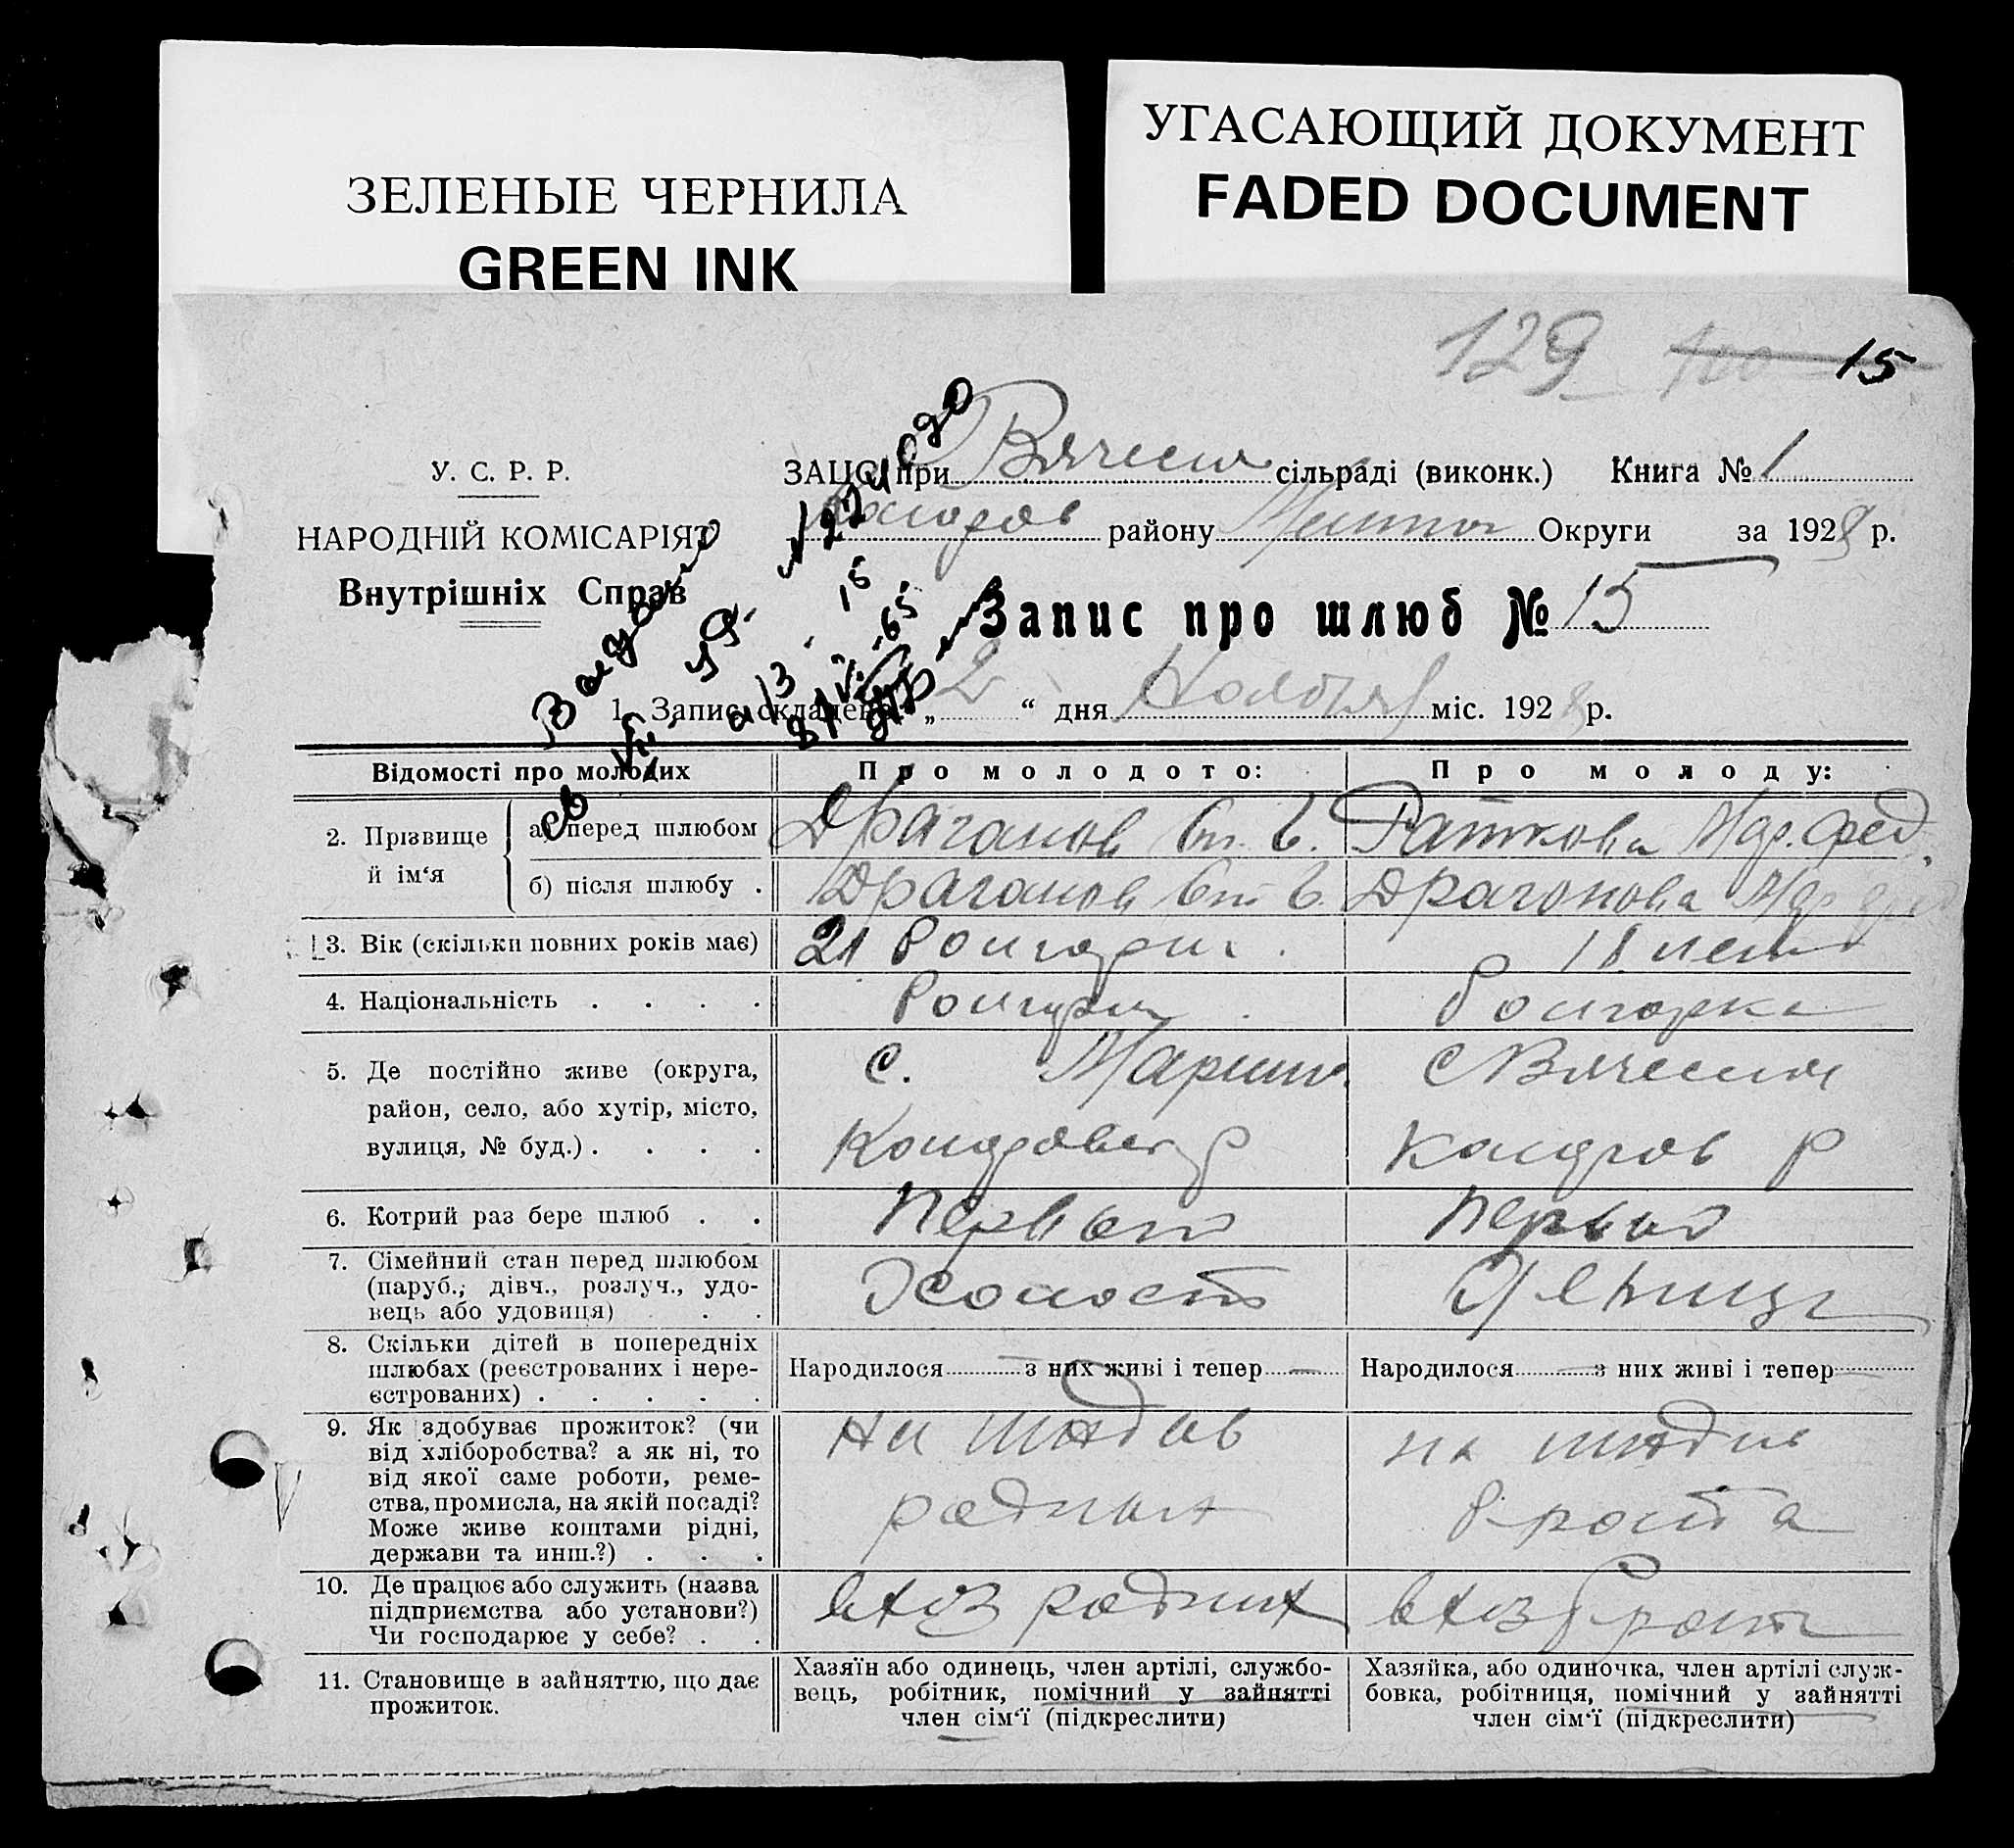 ЗЕЛЕНЫЕ ЧЕРНИЛА
GREEN INK
УГАСАЮЩИЙ ДОКУМЕНТ
FADED DOCUMENT
129 15
У. С. Р. Р.
НАРОДНІЙ КОМІСАРІЯТ
Внутрішніх Справ
ЗАЦС при сільраді (виконк.) Книга № 1
району Округи за 1928 р.
Запис про шлюб № 15
1. Запис складено „ 2 “ дня Ноября міс. 1928 р.
Відомості про молодих
Про молодого:
Про молоду:
2. Прізвище й ім‘я
а) перед шлюбом
Драганов Ст. В.
Раткова Мар. Фед.
б) після шлюбу .
Драганов Ст В.
Драгонова Мар Фед
3. Вік (скільки повних років має)
21
18 лет
4. Національність . . . .
Болгарин
болгорка
5. Де постійно живе (округа,
район, село, або хутір, місто,
вулиця, № буд.) . . . .
с. Марино.
р
с
р
6. Котрий раз бере шлюб . .
Первый
Первый
7. Сімейний стан перед шлюбом
(паруб., дівч., розлуч., удо-
вець або удовиця) . . .
Холост
Девица
8. Скільки дітей в попередніх
шлюбах (реєстрованих і нере-
єстрованих) . . . . .
Народилося з них живі і тепер
Народилося з них живі і тепер
9. Як здобуває прожиток? (чи
від хліборобства? а як ні, то
від якої саме роботи, реме-
ства, промисла, на якій посаді?
Може живе коштами рідні,
держави та инш.?) . . .
на
родных
на
брата
10. Де працює або служить (назва
підприємства або установи?)
Чи господарює у себе? . .
в хоз родных
в хоз брата
11. Становище в зайняттю, що дає
прожиток.
Хазяїн або одинець, член артілі, службо-
вець, робітник, помічний у зайнятті
член сім‘ї (підкреслити)
Хазяйка, або одиночка, член артілі служ-
бовка, робітниця, помічний у зайнятті
член сім‘ї (підкреслити)